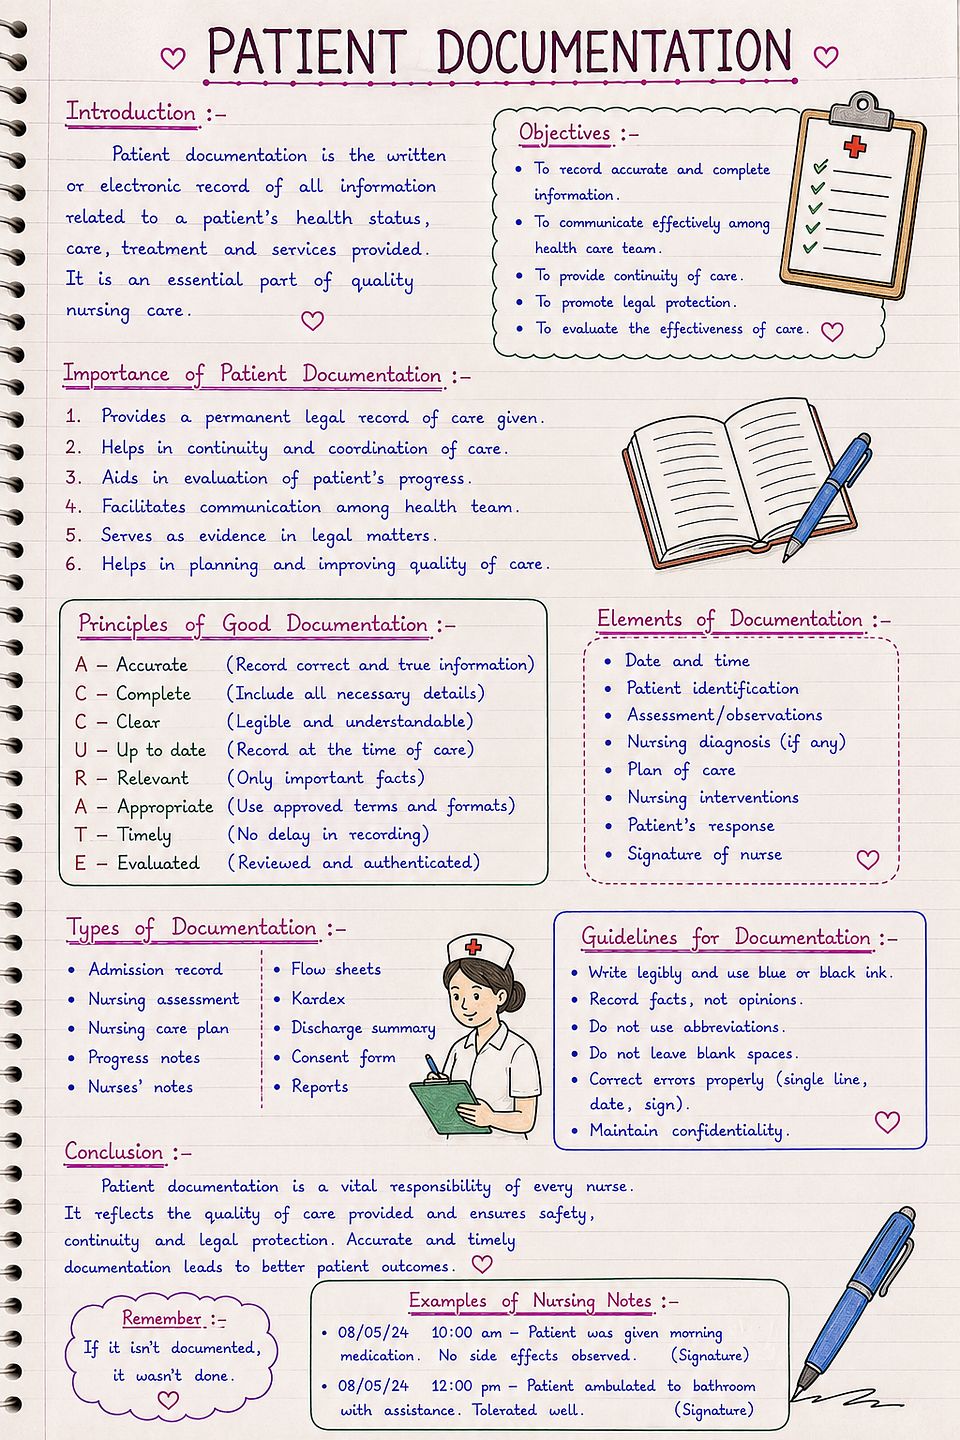 PATIENT DOCUMENTATION
Introduction :-
Patient documentation is the written
or electronic record of all information
related to a patient's health status,
care, treatment and services provided.
It is an essential part of quality
nursing care.
Objectives :-
• To record accurate and complete
information.
• To communicate effectively among
health care team.
• To provide continuity of care.
• To promote legal protection.
• To evaluate the effectiveness of care.
Importance of Patient Documentation :-
1. Provides a permanent legal record of care given.
2. Helps in continuity and coordination of care.
3. Aids in evaluation of patient's progress.
4. Facilitates communication among health team.
5. Serves as evidence in legal matters.
6. Helps in planning and improving quality of care.
Principles of Good Documentation :-
A – Accurate (Record correct and true information)
C – Complete (Include all necessary details)
C – Clear (Legible and understandable)
U – Up to date (Record at the time of care)
R – Relevant (Only important facts)
A – Appropriate (Use approved terms and formats)
T – Timely (No delay in recording)
E – Evaluated (Reviewed and authenticated)
Elements of Documentation :-
• Date and time
• Patient identification
• Assessment/observations
• Nursing diagnosis (if any)
• Plan of care
• Nursing interventions
• Patient's response
• Signature of nurse
Types of Documentation :-
• Admission record
• Nursing assessment
• Nursing care plan
• Progress notes
• Nurses' notes
• Flow sheets
• Kardex
• Discharge summary
• Consent form
• Reports
Guidelines for Documentation :-
• Write legibly and use blue or black ink.
• Record facts, not opinions.
• Do not use abbreviations.
• Do not leave blank spaces.
• Correct errors properly (single line,
date, sign).
• Maintain confidentiality.
Conclusion :-
Patient documentation is a vital responsibility of every nurse.
It reflects the quality of care provided and ensures safety,
continuity and legal protection. Accurate and timely
documentation leads to better patient outcomes.
Remember :-
If it isn't documented,
it wasn't done.
Examples of Nursing Notes :-
• 08/05/24 10:00 am – Patient was given morning
medication. No side effects observed. (Signature)
• 08/05/24 12:00 pm – Patient ambulated to bathroom
with assistance. Tolerated well. (Signature)